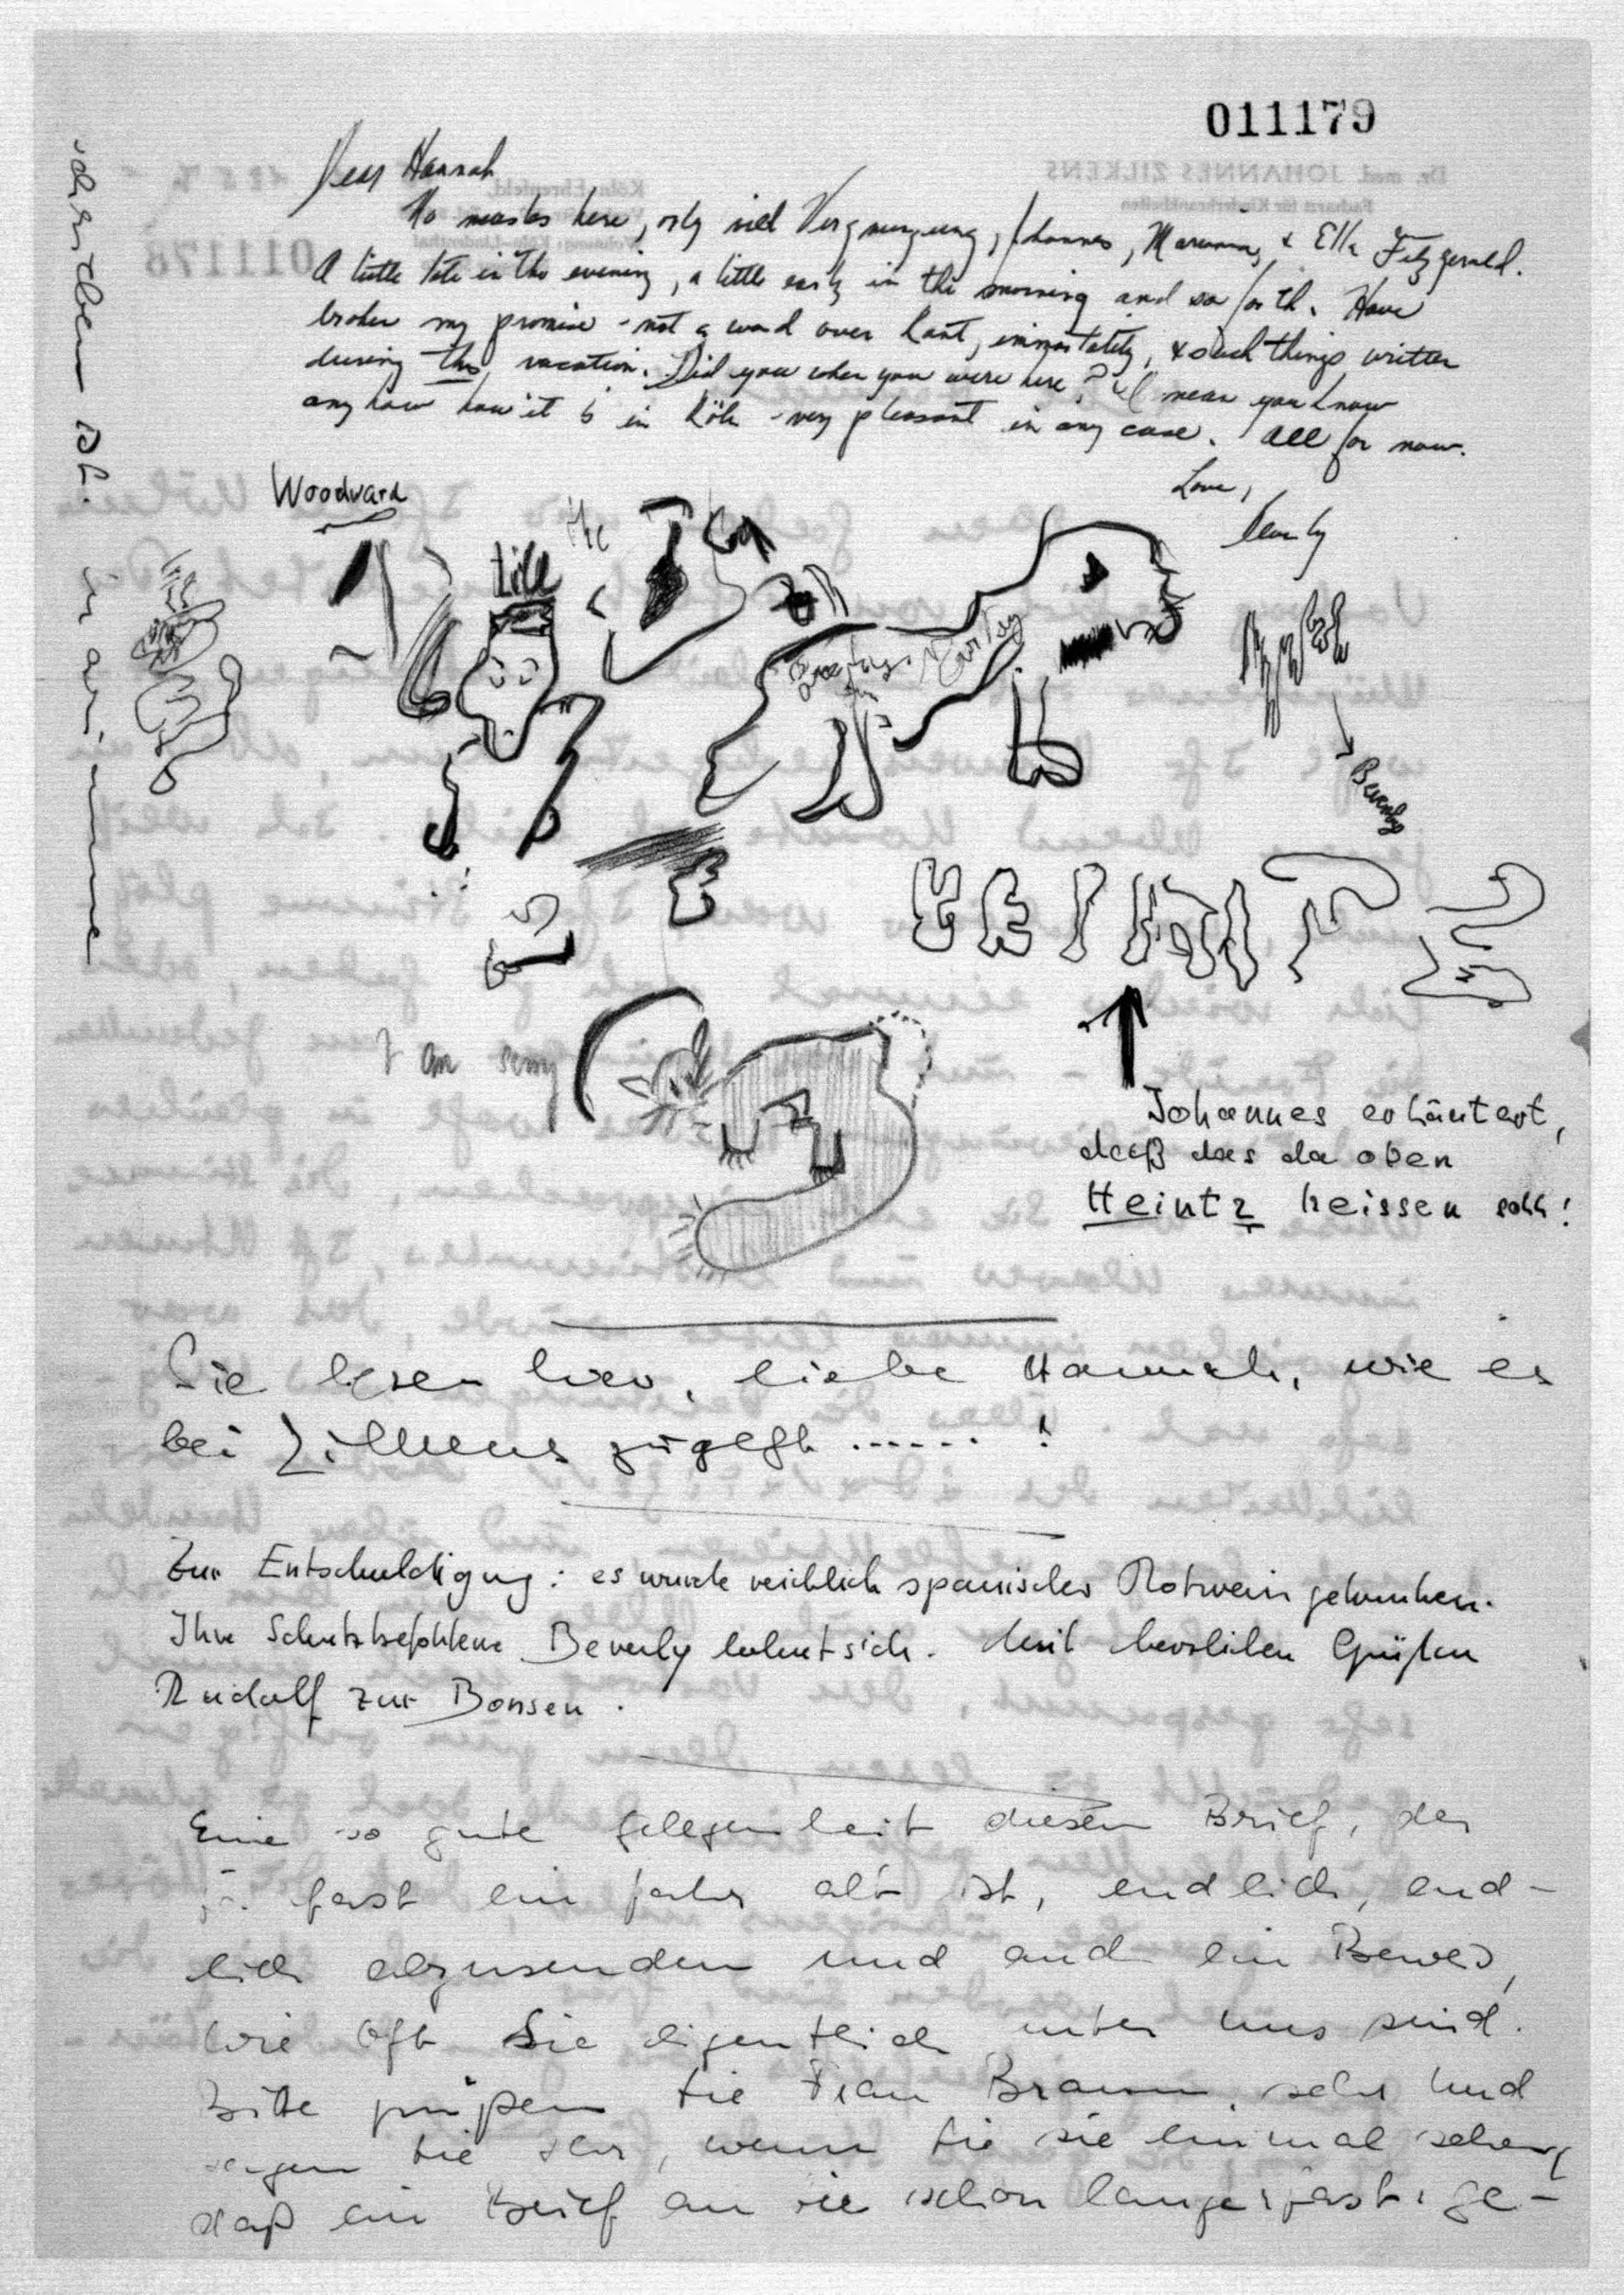 011179
Dear Hannah
No masks here, only viel Vergnuegung, Johannes, Marianne, & Ella Fitzgerald.
A little late in the evening, a little early in the morning and so forth. Have
broken my promise - not a word over Kant, immortality, & such things written
during this vacation. Did you when you were here? I mean you know
anyhow how it is in Köln - very pleasant in any case. All for now.
Love,
Beverly
Woodward
Beverly
I am sorry
Johannes erläutert,
daß das da oben
Heintz heissen soll!
Sie lesen hier, liebe Hannah, wie es
bei Zilkens zugeht ...... !
Zur Entschuldigung: es wurde reichlich spanischer Rotwein getrunken.
Ihre Schutzbefohlene Beverly lohnt sich. Mit herzlichen Grüßen
Rudolf zur Bonsen.
Eine so gute Gelegenheit diesen Brief, der
ja fast ein Jahr alt ist, endlich, end-
lich abzusenden und auch ein Beweis,
wie oft Sie eigentlich unter uns sind.
Bitte grüßen Sie Frau Braun sehr und
sagen Sie ihr, wenn Sie sie einmal sehen,
daß ein Brief an sie schon lange fast ge-
schrieben ist.